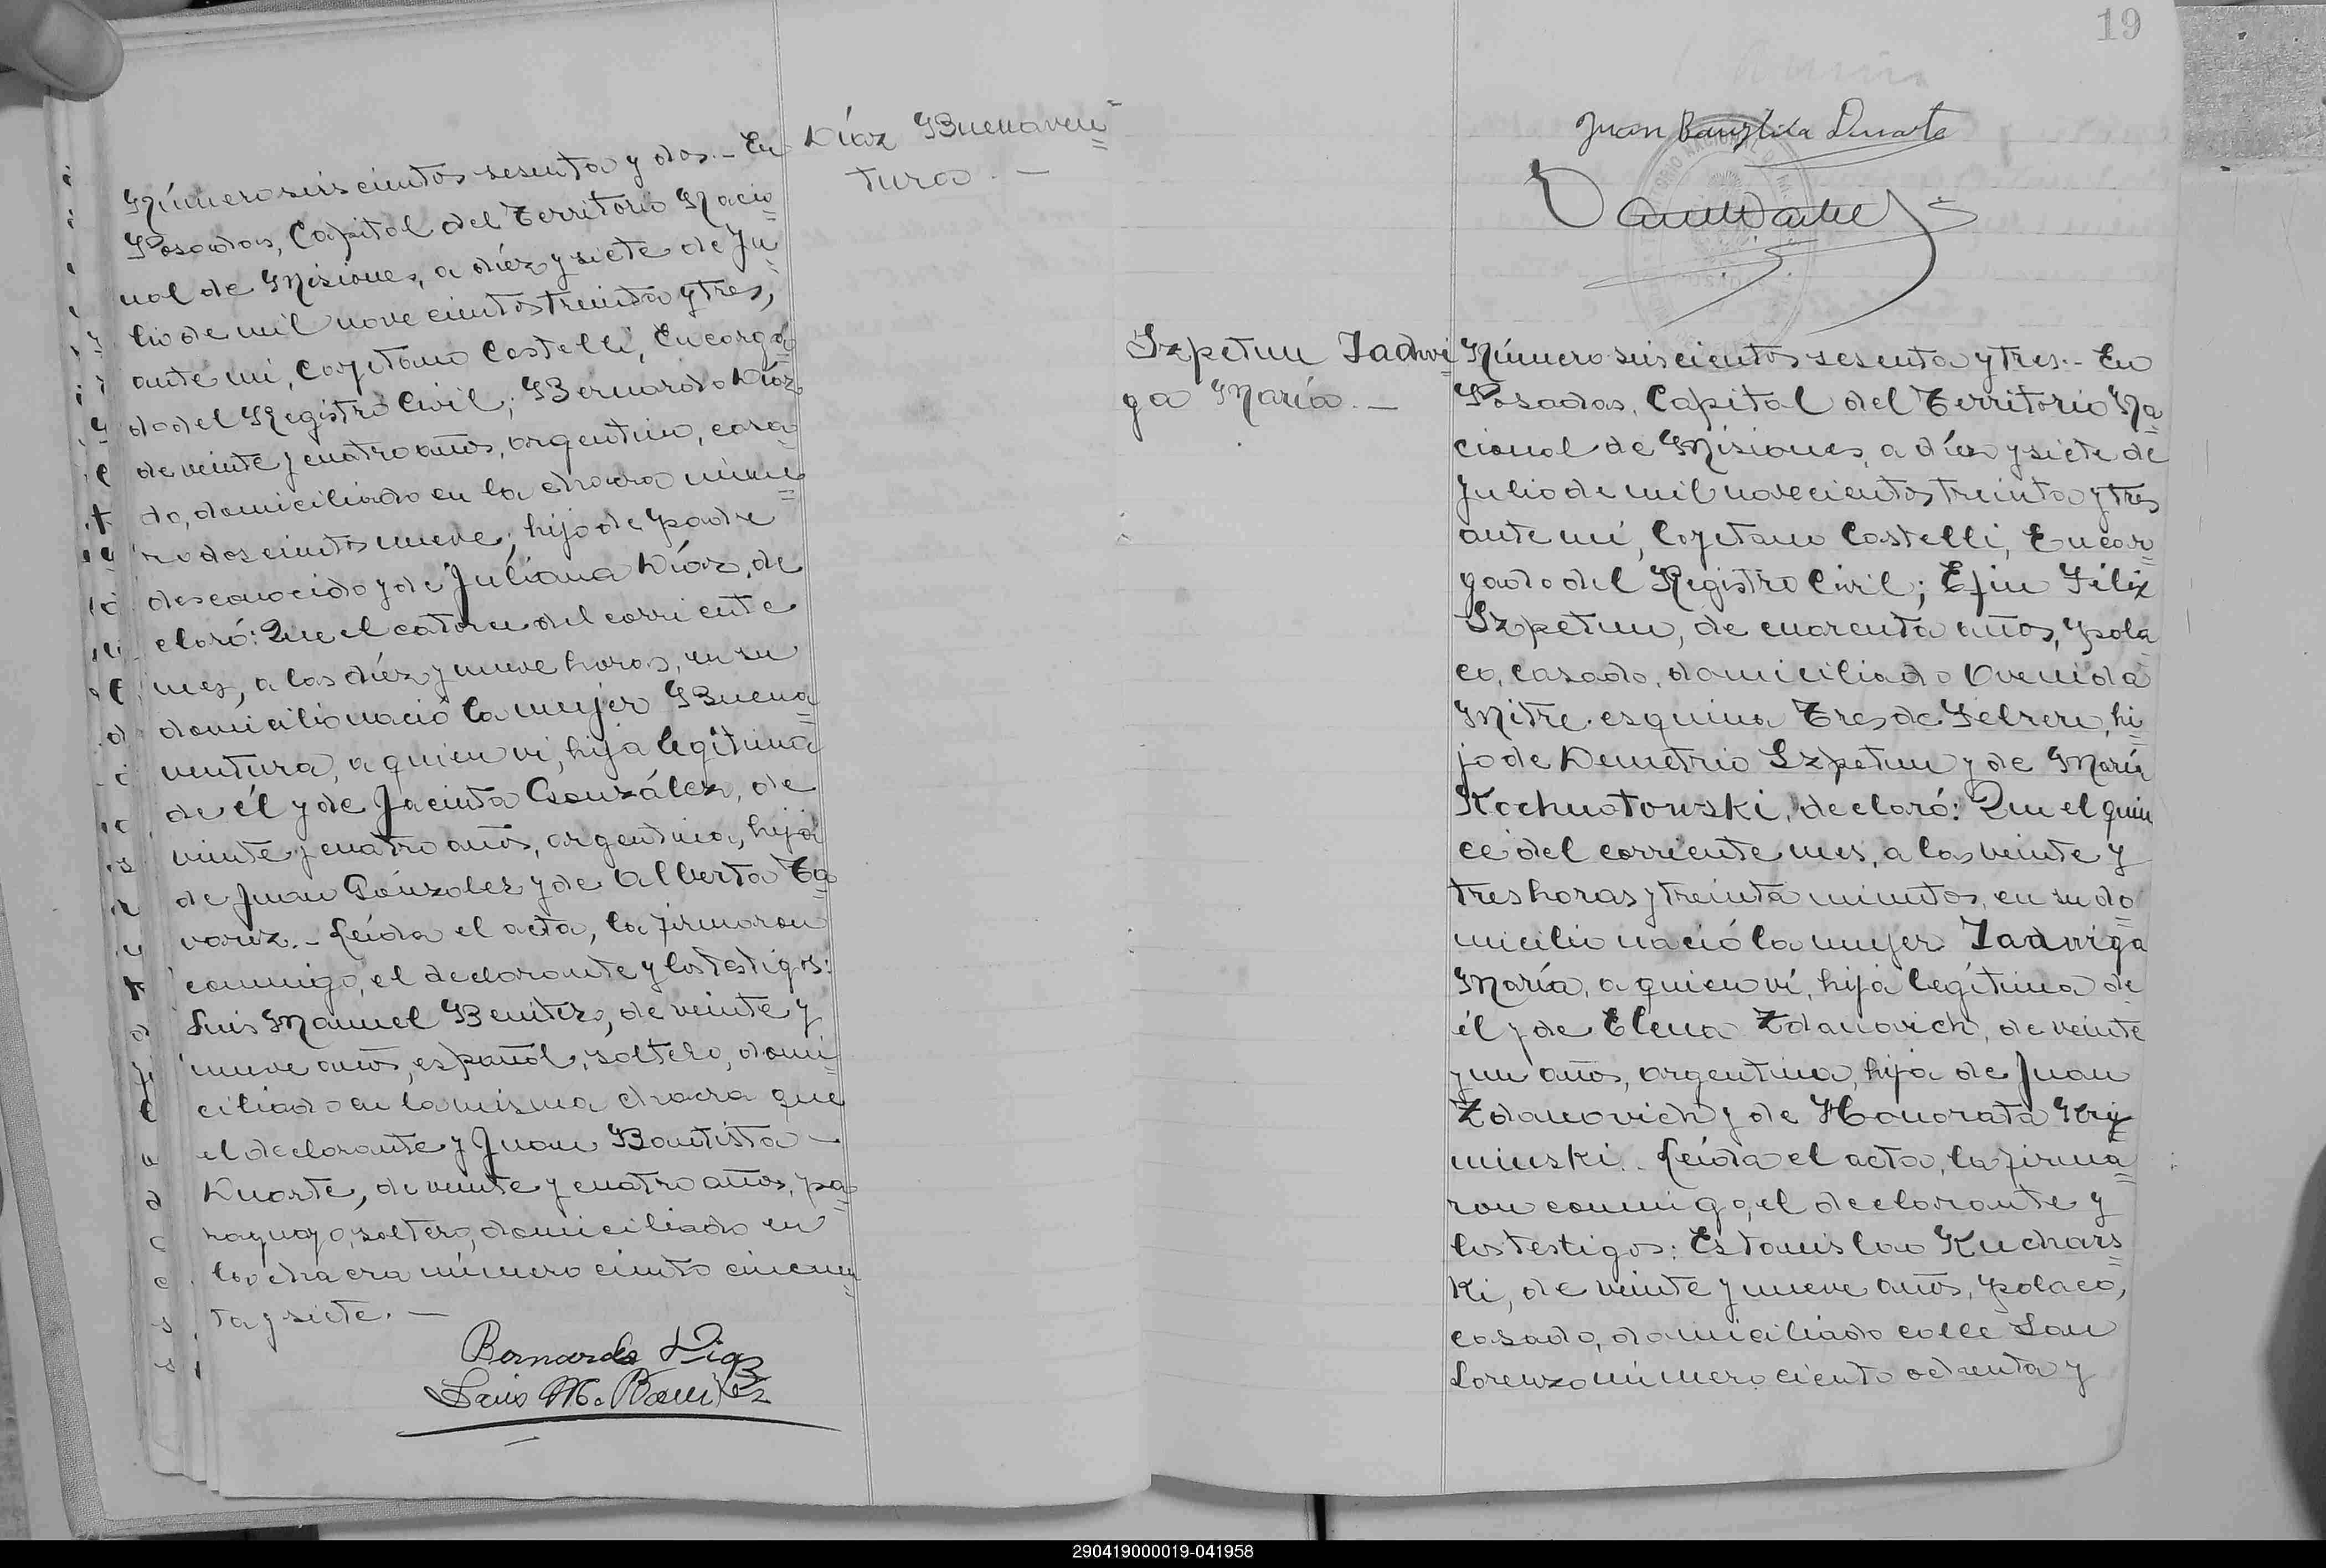 Díaz Buenaven=
tura.—
Número seiscientos sesenta y dos.- En
Posadas, Capital del Territorio Nacio=
nal de Misiones, a diéz y siete de Ju=
lio de mil novecientos treinta y tres,
ante mí, Cayetano Castelli, Encarga=
do del Registro Civil; Bernardo Díaz
de veinte y cuatro años, argentino, casa=
do, domiciliado en la chacra núme=
ro doscientos nueve, hijo de padre
desconocido y de Juliana Díaz, de
claró: Que el catorce del corriente
mes, a las diéz y nueve horas, en su
domicilio nació la mujer Buena=
ventura, a quien ví, hija legítima
de él y de Jacinta González, de
veinte y cuatro años, argentina, hija
de Juan Gónzalez y de Alberta Ta=
varez.- Leída el acta, la firmaron
conmigo, el declarante y los testigos:
Luis Manuel Benitez, de veinte y
nueve años, español, soltero, domi=
ciliado en la misma chacra que
el declarante y Juan Bautista —
Duarte, de veinte y cuatro años, pa=
raguayo, soltero, domiciliado en
la chacra número ciento cincuen=
ta y siete.—
Bernardo Diaz
Luis M. Benitez
19
Juan Bautista Duarte
Szpetun Jadwi=
ga María.—
Número seiscientos sesenta y tres.- En
Posadas, Capital del Territorio Na=
cional de Misiones, a diéz y siete de
Julio de mil novecientos treinta y tres
ante mí, Cayetano Castelli, Encar=
gado del Registro Civil; Efin Félix
Szpetun, de cuarenta años, pola
co, casado, domiciliado Avenida
Mitre esquina Tres de Febrero, hi=
jo de Demetrio Szpetun y de María
Kochnotowski, declaró: Que el quin
ce del corriente mes, a las veinte y
tres horas y treinta minutos, en su do=
micilio nació la mujer Jadwiga
María, a quien ví, hija legítima de
él y de Elena Zdanovich, de veinte
y un años, argentina, hija de Juan
Zdanovich y de Honorata Kry=
minski.- Leída el acta, la firma=
ron conmigo, el declarante y
los testigos: Estanislao Kuchars=
ki, de veinte y nueve años, polaco,
casado, domiciliado calle San
Lorenzo número ciento ochenta y
290419000019-041958